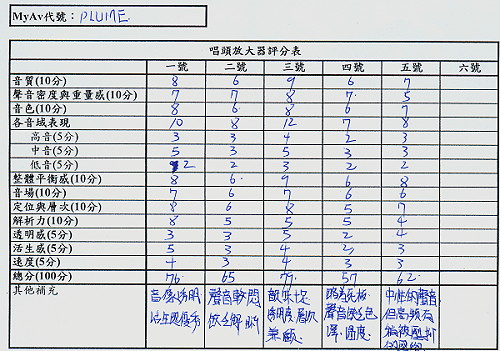 MyAv代號：PLUME
唱頭放大器評分表
一號 二號 三號 四號 五號 六號
音質(10分) 8 6 9 6 7
聲音密度與重量感(10分) 7 7 8 7 5
音色(10分) 8 6 8 6 7
各音域表現 10 8 12 7 8
高音(5分) 3 3 4 2 3
中音(5分) 5 3 5 3 3
低音(5分) 2 2 3 2 2
整體平衡感(10分) 8 6 9 6 8
音場(10分) 7 6 7 6 6
定位與層次(10分) 8 6 8 5 7
解析力(10分) 8 5 5 5 4
透明感(5分) 3 3 5 2 4
活生感(5分) 5 3 4 2 3
速度(5分) 4 3 4 3 3
總分(100分) 76 65 79 57 62
其他補充
音像透明
活生感優秀
聲音較悶
聲音
中性的聲音